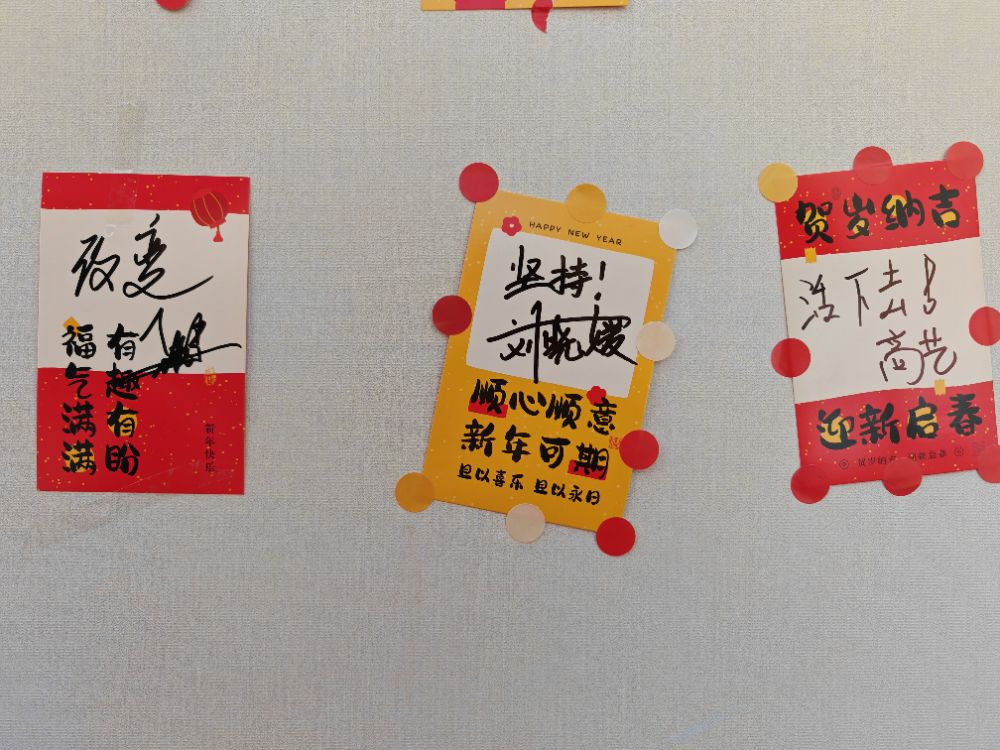 改变
有趣有盼
福气满满
新年快乐
HAPPY NEW YEAR
坚持!
刘晓媛
顺心顺意
新年可期
且以喜乐 且以永日
贺岁纳吉
活下去!
高艺
迎新启春